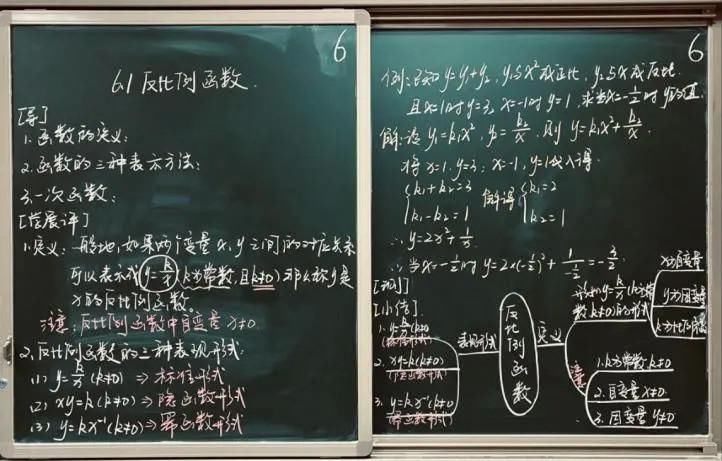 6
6.1 反比例函数.
[导]
1.函数的定义:
2.函数的三种表示方法:
3.一次函数:
展评]
1.定义: 一般地,如果两个变量x,y之间的对应关系
可以表示成y=k/x(k为常数,且k≠0)那么称y是
x的反比例函数。
注意:反比例函数中自变量x≠0.
2.反比例函数的三种表现形式:
(1) y=k/x (k≠0) ⇒ 标准形式
(2) xy=k(k≠0) ⇒ 隐函数形式
(3) y=kx⁻¹(k≠0) ⇒ 幂函数形式
6
例:已知y=y₁+y₂, y₁与x²成正比, y₂与x成反比.
且x=1时y=3, x=-1时y=1, 求当x=-1/2时y的值.
解:设 y₁=k₁x², y₂=k₂/x, 则 y=k₁x²+k₂/x.
将x=1,y=3; x=-1,y=1代入得.
{k₁+k₂=3 解得 {k₁=2
k₁-k₂=1 k₂=1
∴ y=2x²+1/x
∴ 当x=-1/2时 y=2×(-1/2)²+1/-1/2=-3/2
[测]
[小结]
1. y=k/x(k≠0)
(标准形式)
2. xy=k(k≠0)
(隐函数形式)
3. y=kx⁻¹(k≠0)
(幂函数形式)
表现形式
反比例函数
定义
形如y=k/x(k为常
数k≠0)的形式
x为自变量
y为因变量
k为比例
注意
1.k为常数k≠0
2.自变量x≠0
3.因变量y≠0